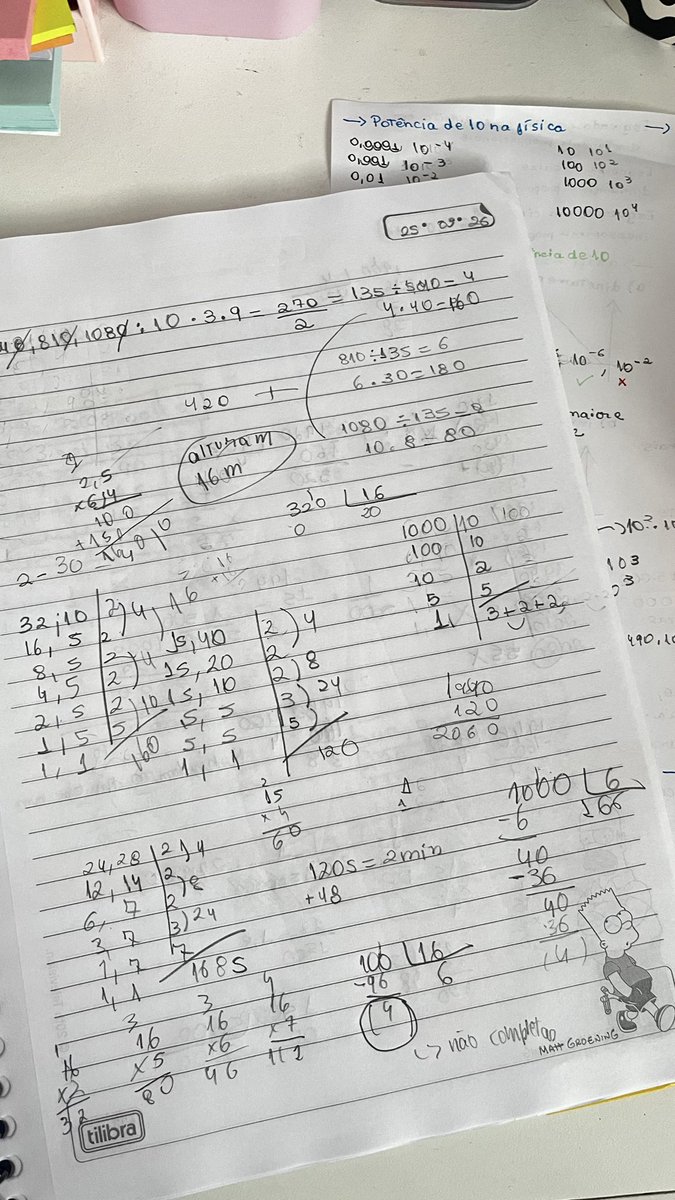 → Potência de 10 na física →
0,0001 10⁻⁴ 10 10¹
0,001 10⁻³ 100 10²
0,01 10⁻² 1000 10³
10000 10⁴
ência de 10
10⁻⁶, 10⁻²
maior e
→10³.10
10³
490.10
25 · 09 · 26
810, 1080 : 10 · 3 · 9 = 270/2 = 135 ÷ 540 = 4
4.40=160
810÷135=6
6.30=180
420 +
1080÷135=8
10.8=80
altura m
16 m
2,5
×64
100
+150
2-30
320 | 16
0 20
1000 | 10
100 | 10
10 | 2
5 | 5
1, 3+2+2,
32,10 | 2)4)16
16,5 | 2
8,5 | 2)4
4,5 | 2
2,5 | 2)10
1,5 | 5
1,1 160
15,40 | 2)4
15,20 | 2
15,10 | 2)8
5,5 | 3)24
5,5 | 5)
1,1 120
120
2060
2
15
×4
60
1000 | 6
-6 166
40
-36
40
36
(4)
24,28 | 2)4
12,14 | 2)8
6,7 | 2
3,7 | 3)24
1,7 | 7
1,1 168S
120s = 2min
+48
1
16
×2
32
3
16
×5
80
3
16
×6
96
4
16
×7
112
100 | 16
-96 6
4
↳ não completao
MATT GROENING
tilibra